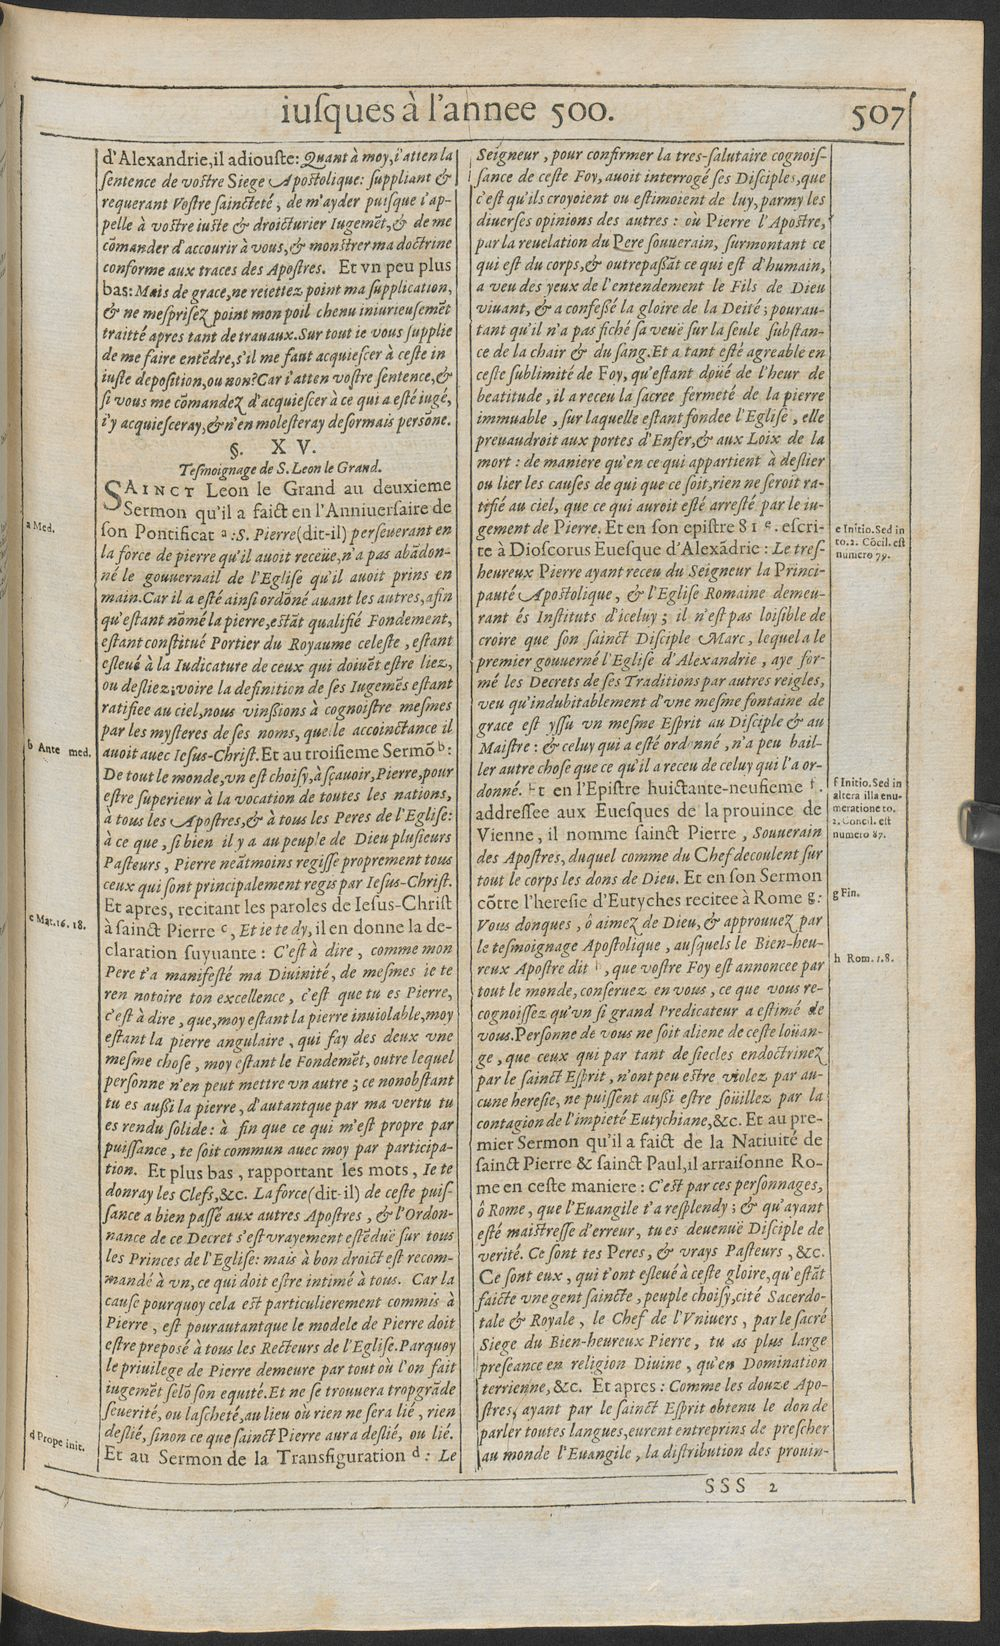 iuſques à l'annee 500.
507
d'Alexandrie, il adiouſte: Quant à moy, i'atten la
ſentence de voſtre Siege Apoſtolique: ſuppliant &
requerant Voſtre ſaincteté, de m'ayder puiſque i'ap-
pelle à voſtre iuſte & droicturier Iugemẽt, & de me
cõmander d'accourir à vous, & monſtrer ma doctrine
conforme aux traces des Apoſtres. Et vn peu plus
bas: Mais de grace, ne reiettez point ma ſupplication,
& ne meſpriſez point mon poil chenu iniurieuſemẽt
traitté apres tant de trauaux. Sur tout ie vous ſupplie
de me faire entẽdre, s'il me faut acquieſcer à ceſte in
iuſte depoſition, ou non? Car i'atten voſtre ſentence, &
ſi vous me cõmandez d'acquieſcer à ce qui a eſté iugé,
i'y acquieſceray, & n'en moleſteray deſormais perſõne.
§. XV.
Teſmoignage de S. Leon le Grand.
SAINCT Leon le Grand au deuxieme
Sermon qu'il a faict en l'Anniuerſaire de
ſon Pontificat a : S. Pierre (dit-il) perſeuerant en
la force de pierre qu'il auoit receüe, n'a pas abãdon-
né le gouuernail de l'Egliſe qu'il auoit prins en
main. Car il a eſté ainſi ordõné auant les autres, afin
qu'eſtant nõmé la pierre, eſtãt qualifié Fondement,
eſtant conſtitué Portier du Royaume celeſte, eſtant
eſleué à la Iudicature de ceux qui doiuẽt eſtre liez,
ou deſliez; voire la definition de ſes Iugemẽs eſtant
ratifiee au ciel, nous vinßions à cognoiſtre meſmes
par les myſteres de ſes noms, quelle accoinctance il
auoit auec Ieſus-Chriſt. Et au troiſieme Sermõ b :
De tout le monde, vn eſt choiſy, à ſçauoir, Pierre, pour
eſtre ſuperieur à la vocation de toutes les nations,
à tous les Apoſtres, & à tous les Peres de l'Egliſe:
à ce que, ſi bien il y a au peuple de Dieu pluſieurs
Paſteurs, Pierre neãtmoins regiſſe proprement tous
ceux qui ſont principalement regis par Ieſus-Chriſt.
Et apres, recitant les paroles de Ieſus-Chriſt
à ſainct Pierre c, Et ie te dy, il en donne la de-
claration ſuyuante: C'eſt à dire, comme mon
Pere t'a manifeſté ma Diuinité, de meſmes ie te
ren notoire ton excellence, c'eſt que tu es Pierre,
c'eſt à dire, que, moy eſtant la pierre inuiolable, moy
eſtant la pierre angulaire, qui fay des deux vne
meſme choſe, moy eſtant le Fondemẽt, outre lequel
perſonne n'en peut mettre vn autre; ce nonobſtant
tu es außi la pierre, d'autant que par ma vertu tu
es rendu ſolide: à fin que ce qui m'eſt propre par
puiſſance, te ſoit commun auec moy par participa-
tion. Et plus bas, rapportant les mots, Ie te
donray les Clefs, &c. La force (dit-il) de ceſte puiſ-
ſance a bien paſſé aux autres Apoſtres, & l'Ordon-
nance de ce Decret s'eſt vrayement eſtẽduë ſur tous
les Princes de l'Egliſe: mais à bon droict eſt recom-
mandé à vn, ce qui doit eſtre intimé à tous. Car la
cauſe pourquoy cela eſt particulierement commis à
Pierre, eſt pourautant que le modele de Pierre doit
eſtre prepoſé à tous les Recteurs de l'Egliſe. Parquoy
le priuilege de Pierre demeure par tout où l'on fait
iugemẽt ſelõ ſon equité. Et ne ſe trouuera trop grãde
ſeuerité, ou laſcheté, au lieu où rien ne ſera lié, rien
deſlié, ſinon ce que ſainct Pierre aura deſlié, ou lié.
Et au Sermon de la Transfiguration d : Le
a Med.
b Ante med.
c Mat. 16. 18.
d Prope init.
Seigneur, pour confirmer la tres-ſalutaire cognoiſ-
ſance de ceſte Foy, auoit interrogé ſes Diſciples, que
c'eſt qu'ils croyoient ou eſtimoient de luy, parmy les
diuerſes opinions des autres: où Pierre l'Apoſtre,
par la reuelation du Pere ſouuerain, ſurmontant ce
qui eſt du corps, & outrepaßãt ce qui eſt d'humain,
a veu des yeux de l'entendement le Fils de Dieu
viuant, & a confeſſé la gloire de la Deité; pourau-
tant qu'il n'a pas fiché ſa veuë ſur la ſeule ſubſtan-
ce de la chair & du ſang. Et a tant eſté agreable en
ceſte ſublimité de Foy, qu'eſtant doüé de l'heur de
beatitude, il a receu la ſacree fermeté de la pierre
immuable, ſur laquelle eſtant fondee l'Egliſe, elle
preuaudroit aux portes d'Enfer, & aux Loix de la
mort: de maniere qu'en ce qui appartient à deſlier
ou lier les cauſes de qui que ce ſoit, rien ne ſeroit ra-
tifié au ciel, que ce qui auroit eſté arreſté par le iu-
gement de Pierre. Et en ſon epiſtre 81 e. eſcri-
te à Dioſcorus Eueſque d'Alexãdrie: Le treſ-
heureux Pierre ayant receu du Seigneur la Princi-
pauté Apoſtolique, & l'Egliſe Romaine demeu-
rant és Inſtituts d'iceluy; il n'eſt pas loiſible de
croire que ſon ſainct Diſciple Marc, lequel a le
premier gouuerné l'Egliſe d'Alexandrie, aye for-
mé les Decrets de ſes Traditions par autres reigles,
veu qu'indubitablement d'vne meſme fontaine de
grace eſt yſſu vn meſme Eſprit au Diſciple & au
Maiſtre: & celuy qui a eſté ordonné, n'a peu bail-
ler autre choſe que ce qu'il a receu de celuy qui l'a or-
donné. Et en l'Epiſtre huictante-neufieme f.
addreſſee aux Eueſques de la prouince de
Vienne, il nomme ſainct Pierre, Souuerain
des Apoſtres, duquel comme du Chef decoulent ſur
tout le corps les dons de Dieu. Et en ſon Sermon
cõtre l'hereſie d'Eutyches recitee à Rome g:
Vous donques, ô aimez de Dieu, & approuuez par
le teſmoignage Apoſtolique, auſquels le Bien-heu-
reux Apoſtre dit h, que voſtre Foy eſt annoncee par
tout le monde, conſeruez en vous, ce que vous re-
cognoiſſez qu'vn ſi grand Predicateur a eſtimé de
vous. Perſonne de vous ne ſoit aliene de ceſte loüan-
ge, que ceux qui par tant de ſiecles endoctrinez
par le ſainct Eſprit, n'ont peu eſtre violez par au-
cune hereſie, ne puiſſent außi eſtre ſoüillez par la
contagion de l'impieté Eutychiane, &c. Et au pre-
mier Sermon qu'il a faict de la Natiuité de
ſainct Pierre & ſainct Paul, il arraiſonne Ro-
me en ceſte maniere: C'eſt par ces perſonnages,
ô Rome, que l'Euangile t'a reſplendy; & qu'ayant
eſté maiſtreſſe d'erreur, tu es deuenuë Diſciple de
verité. Ce ſont tes Peres, & vrays Paſteurs, &c.
Ce ſont eux, qui t'ont eſleué à ceſte gloire, qu'eſtãt
faicte vne gent ſaincte, peuple choiſy, cité Sacerdo-
tale & Royale, le Chef de l'Vniuers, par le ſacré
Siege du Bien-heureux Pierre, tu as plus large
preſeance en religion Diuine, qu'en Domination
terrienne, &c. Et apres: Comme les douze Apo-
ſtres, ayant par le ſainct Eſprit obtenu le don de
parler toutes langues, eurent entreprins de preſcher
au monde l'Euangile, la diſtribution des prouin-
e Initio. Sed in
to. 2. Cõcil. eſt
numero 79.
f Initio. Sed in
altera illa enu-
meratione to.
2. Concil. eſt
numero 87.
g Fin.
h Rom. 1. 8.
SSS 2